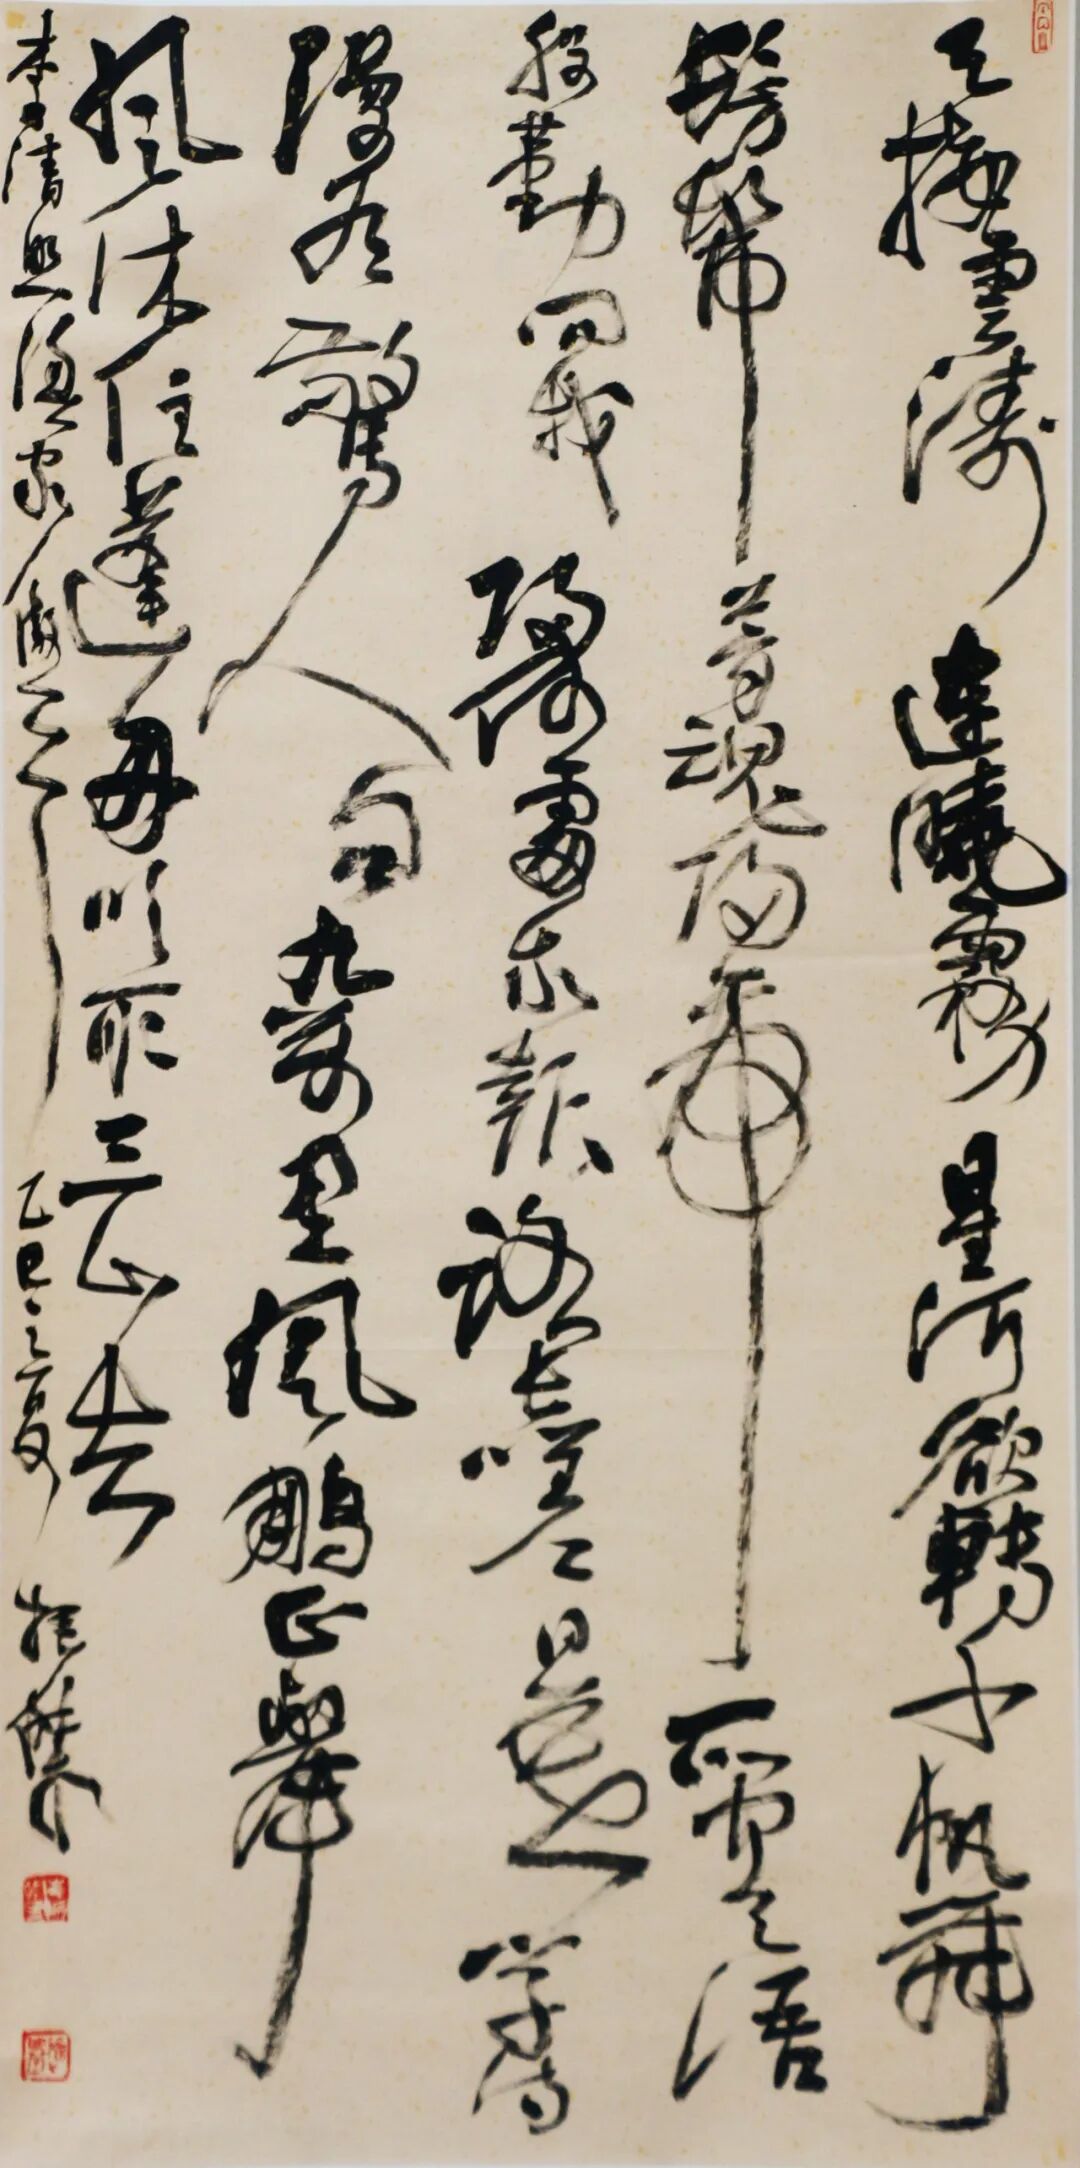 天接雲濤連曉霧星河欲轉千帆舞
髣髴夢魂歸帝所聞天語
殷勤問我歸何處我報路長嗟日暮學詩
謾有驚人句九萬里風鵬正舉
風休住蓬舟吹取三山去
李清照漁家傲 乙巳之夏